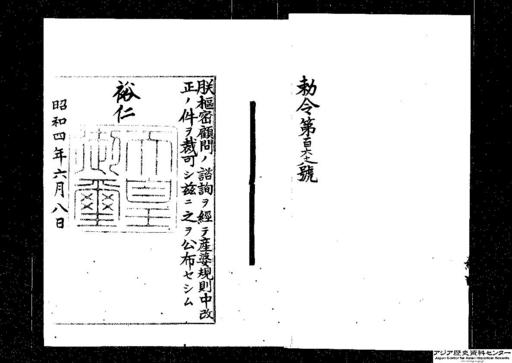 勅令第百六七號
朕樞密顧問ノ諮詢ヲ經テ産婆規則中改
正ノ件ヲ裁可シ茲ニ之ヲ公布セシム
裕仁
天皇
御璽
昭和四年六月八日
アジア歴史資料センター
Japan Center for Asian Historical Records